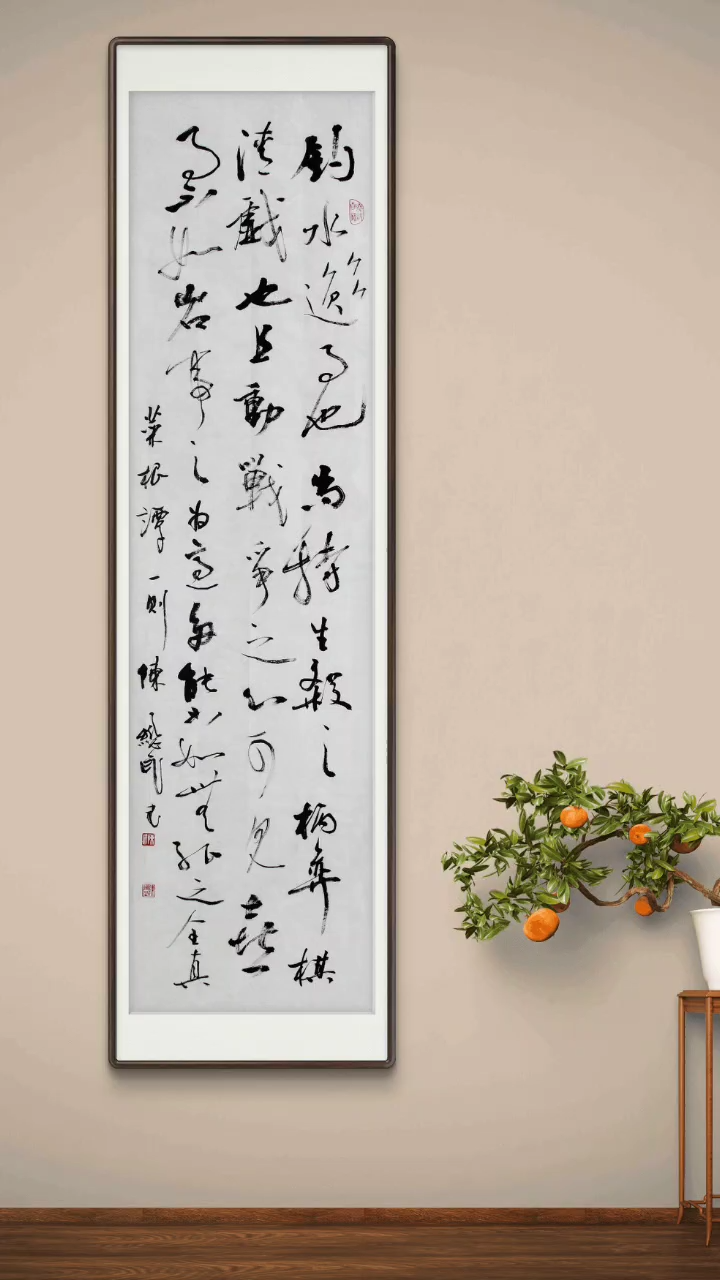 釣水逸事也尚持生殺之柄弈棋
清戲也且動戰爭之心可見喜
事不如省事之為適多能不如無能之全真
菜根譚一則 陳 書